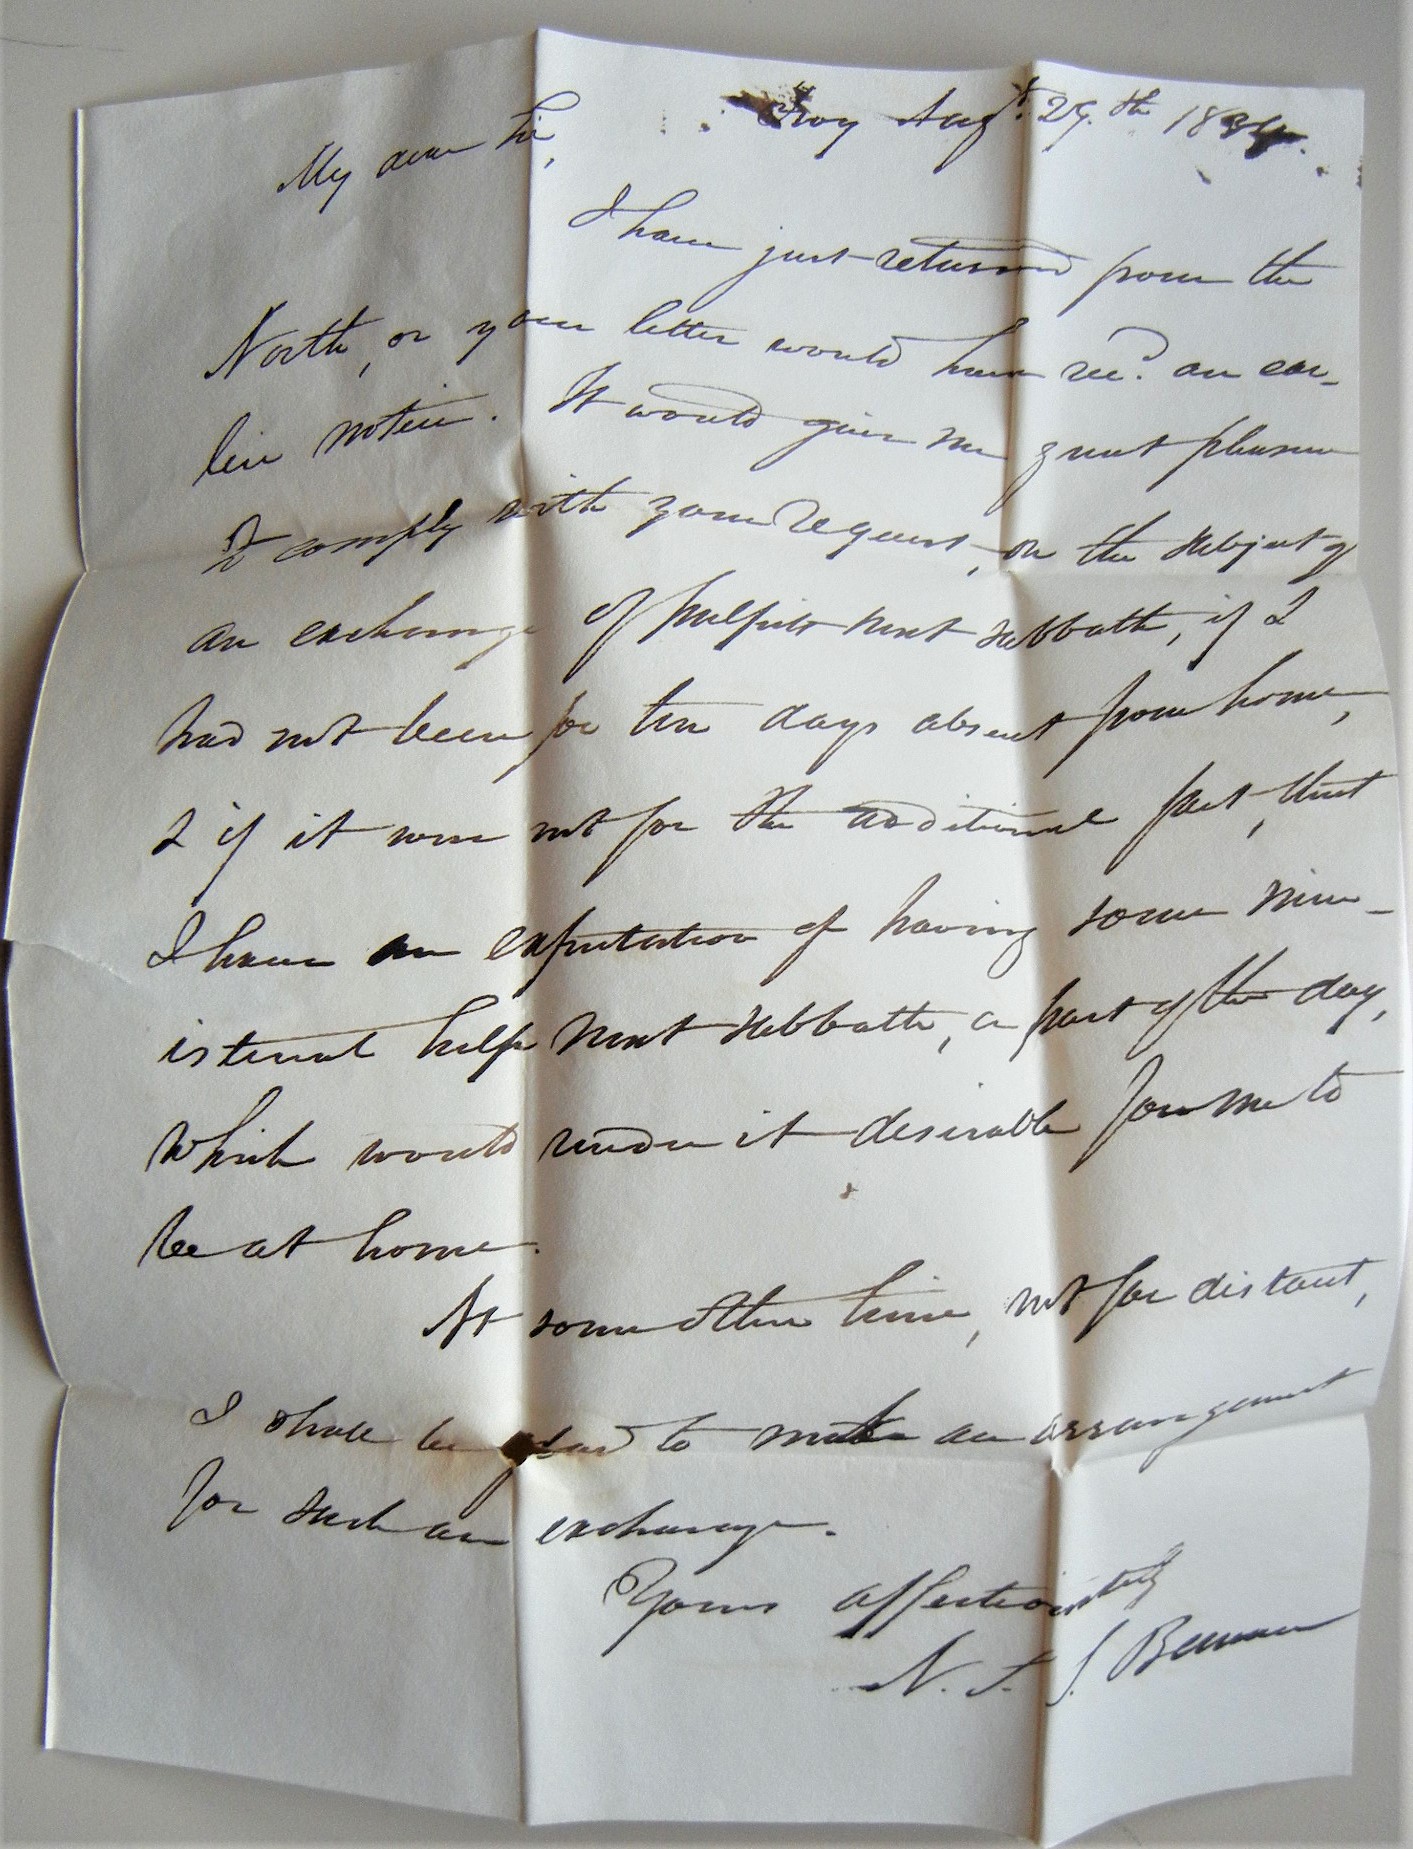 Troy Augt. 29.th 1834.
My dear Sir,
I have just returned from the
North, or your letter would have recd. an ear-
lier notice. It would give me great pleasure
to comply with your request, on the subject of
an exchange of pulpits next Sabbath, if I
had not been for ten days absent from home,
& if it were not for the additional fact, that
I have an expectation of having some min-
isterial help next Sabbath, a part of the day,
which would render it desirable for me to
be at home.
At some other time, not far distant,
I shall be glad to make an arrangement
for such an exchange.
Yours affectionately
N. S. S. Beman